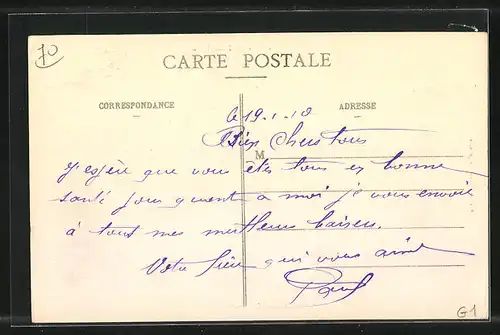 70
CARTE POSTALE
CORRESPONDANCE
ADRESSE
le 19-1-10
Bien Chers tous
M
J'espère que vous êtes tous en bonne
santé pour quant a moi je vous envoie
à tous mes meilleurs baisers.
Votre frère qui vous aime
Paul
G1